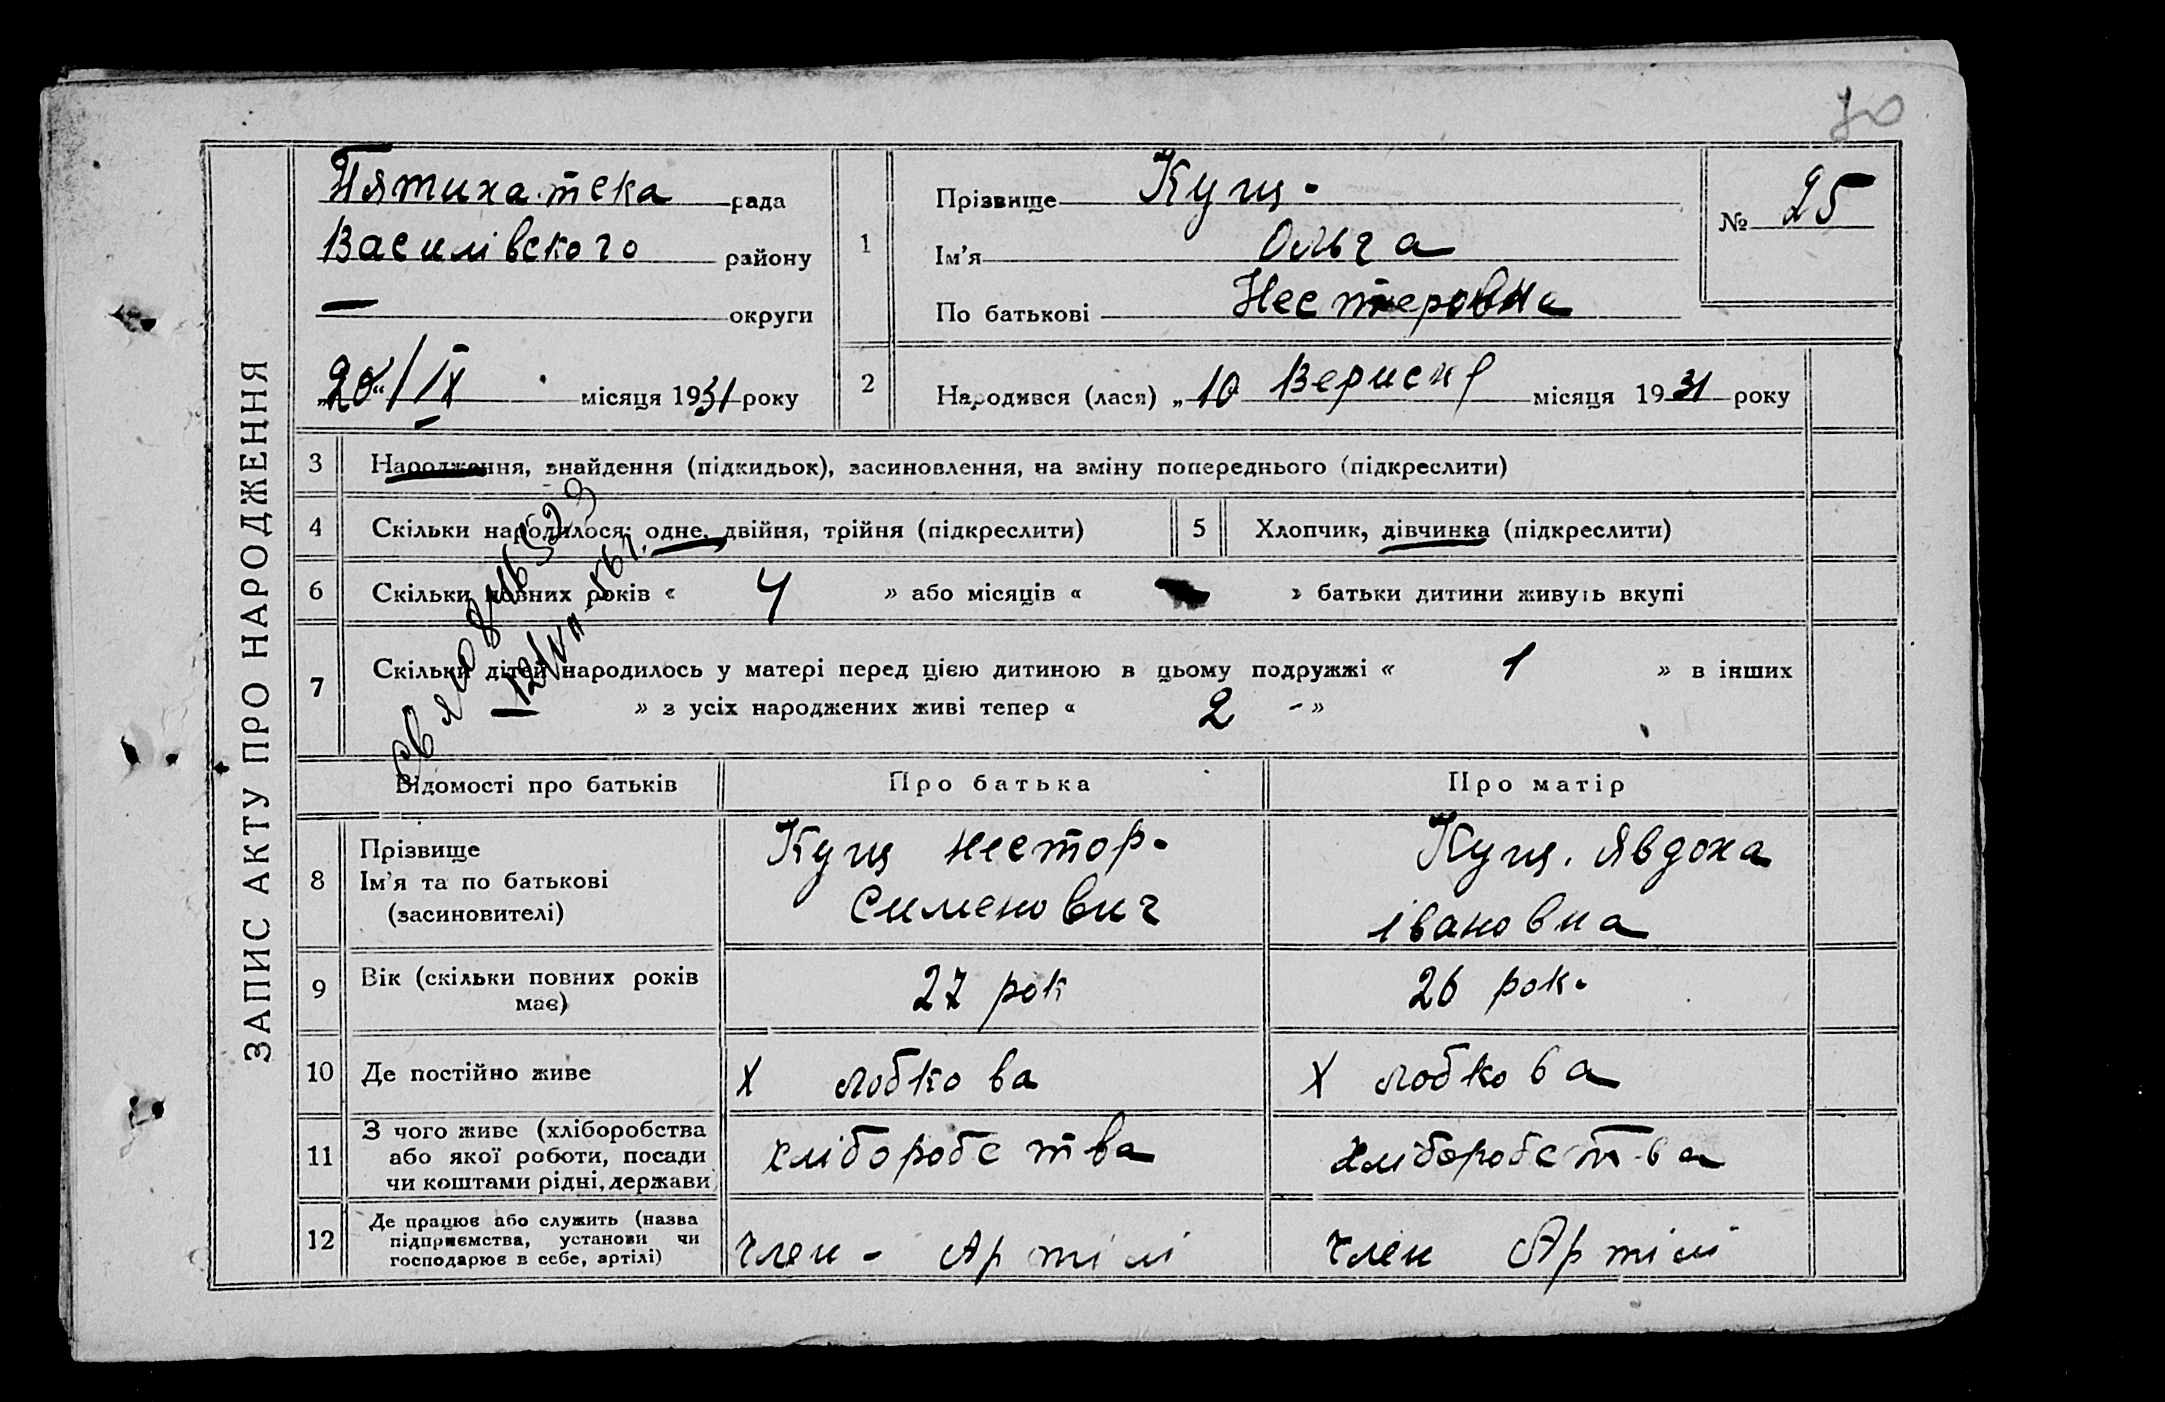 70
ЗАПИС АКТУ ПРО НАРОДЖЕННЯ
Пятихатска рада
Василівского району
— округи
„20“/IX місяця 1931 року
1
Прізвище Кущ.
Ім'я Ольга
По батькові Нестеровна
№ 25
2
Народився (лася) „10 Вересня місяця 1931 року
3 Народження, знайдення (підкидьок), засиновлення, на зміну попереднього (підкреслити)
4 Скільки народилося: одне, двійня, трійня (підкреслити)
5 Хлопчик, дівчинка (підкреслити)
6 Скільки повних років « 4 » або місяців « » батьки дитини живуть вкупі
7 Скільки дітей народилось у матері перед цією дитиною в цьому подружжі « 1 » в інших
» з усіх народжених живі тепер « 2 - »
Відомості про батьків
Про батька
Про матір
8 Прізвище
Ім'я та по батькові
(засиновителі)
Кущ Нестор.
Сименович
Кущ. Явдоха
івановна
9 Вік (скільки повних років
має)
27 рок
26 рок.
10 Де постійно живе
Х лобкова
Х лобкова
11 З чого живе (хліборобства
або якої роботи, посади
чи коштами рідні, держави
хліборобства
хліборобства
12 Де працює або служить (назва
підприємства, установи чи
господарює в себе, артілі)
член - Артілі
член Артілі